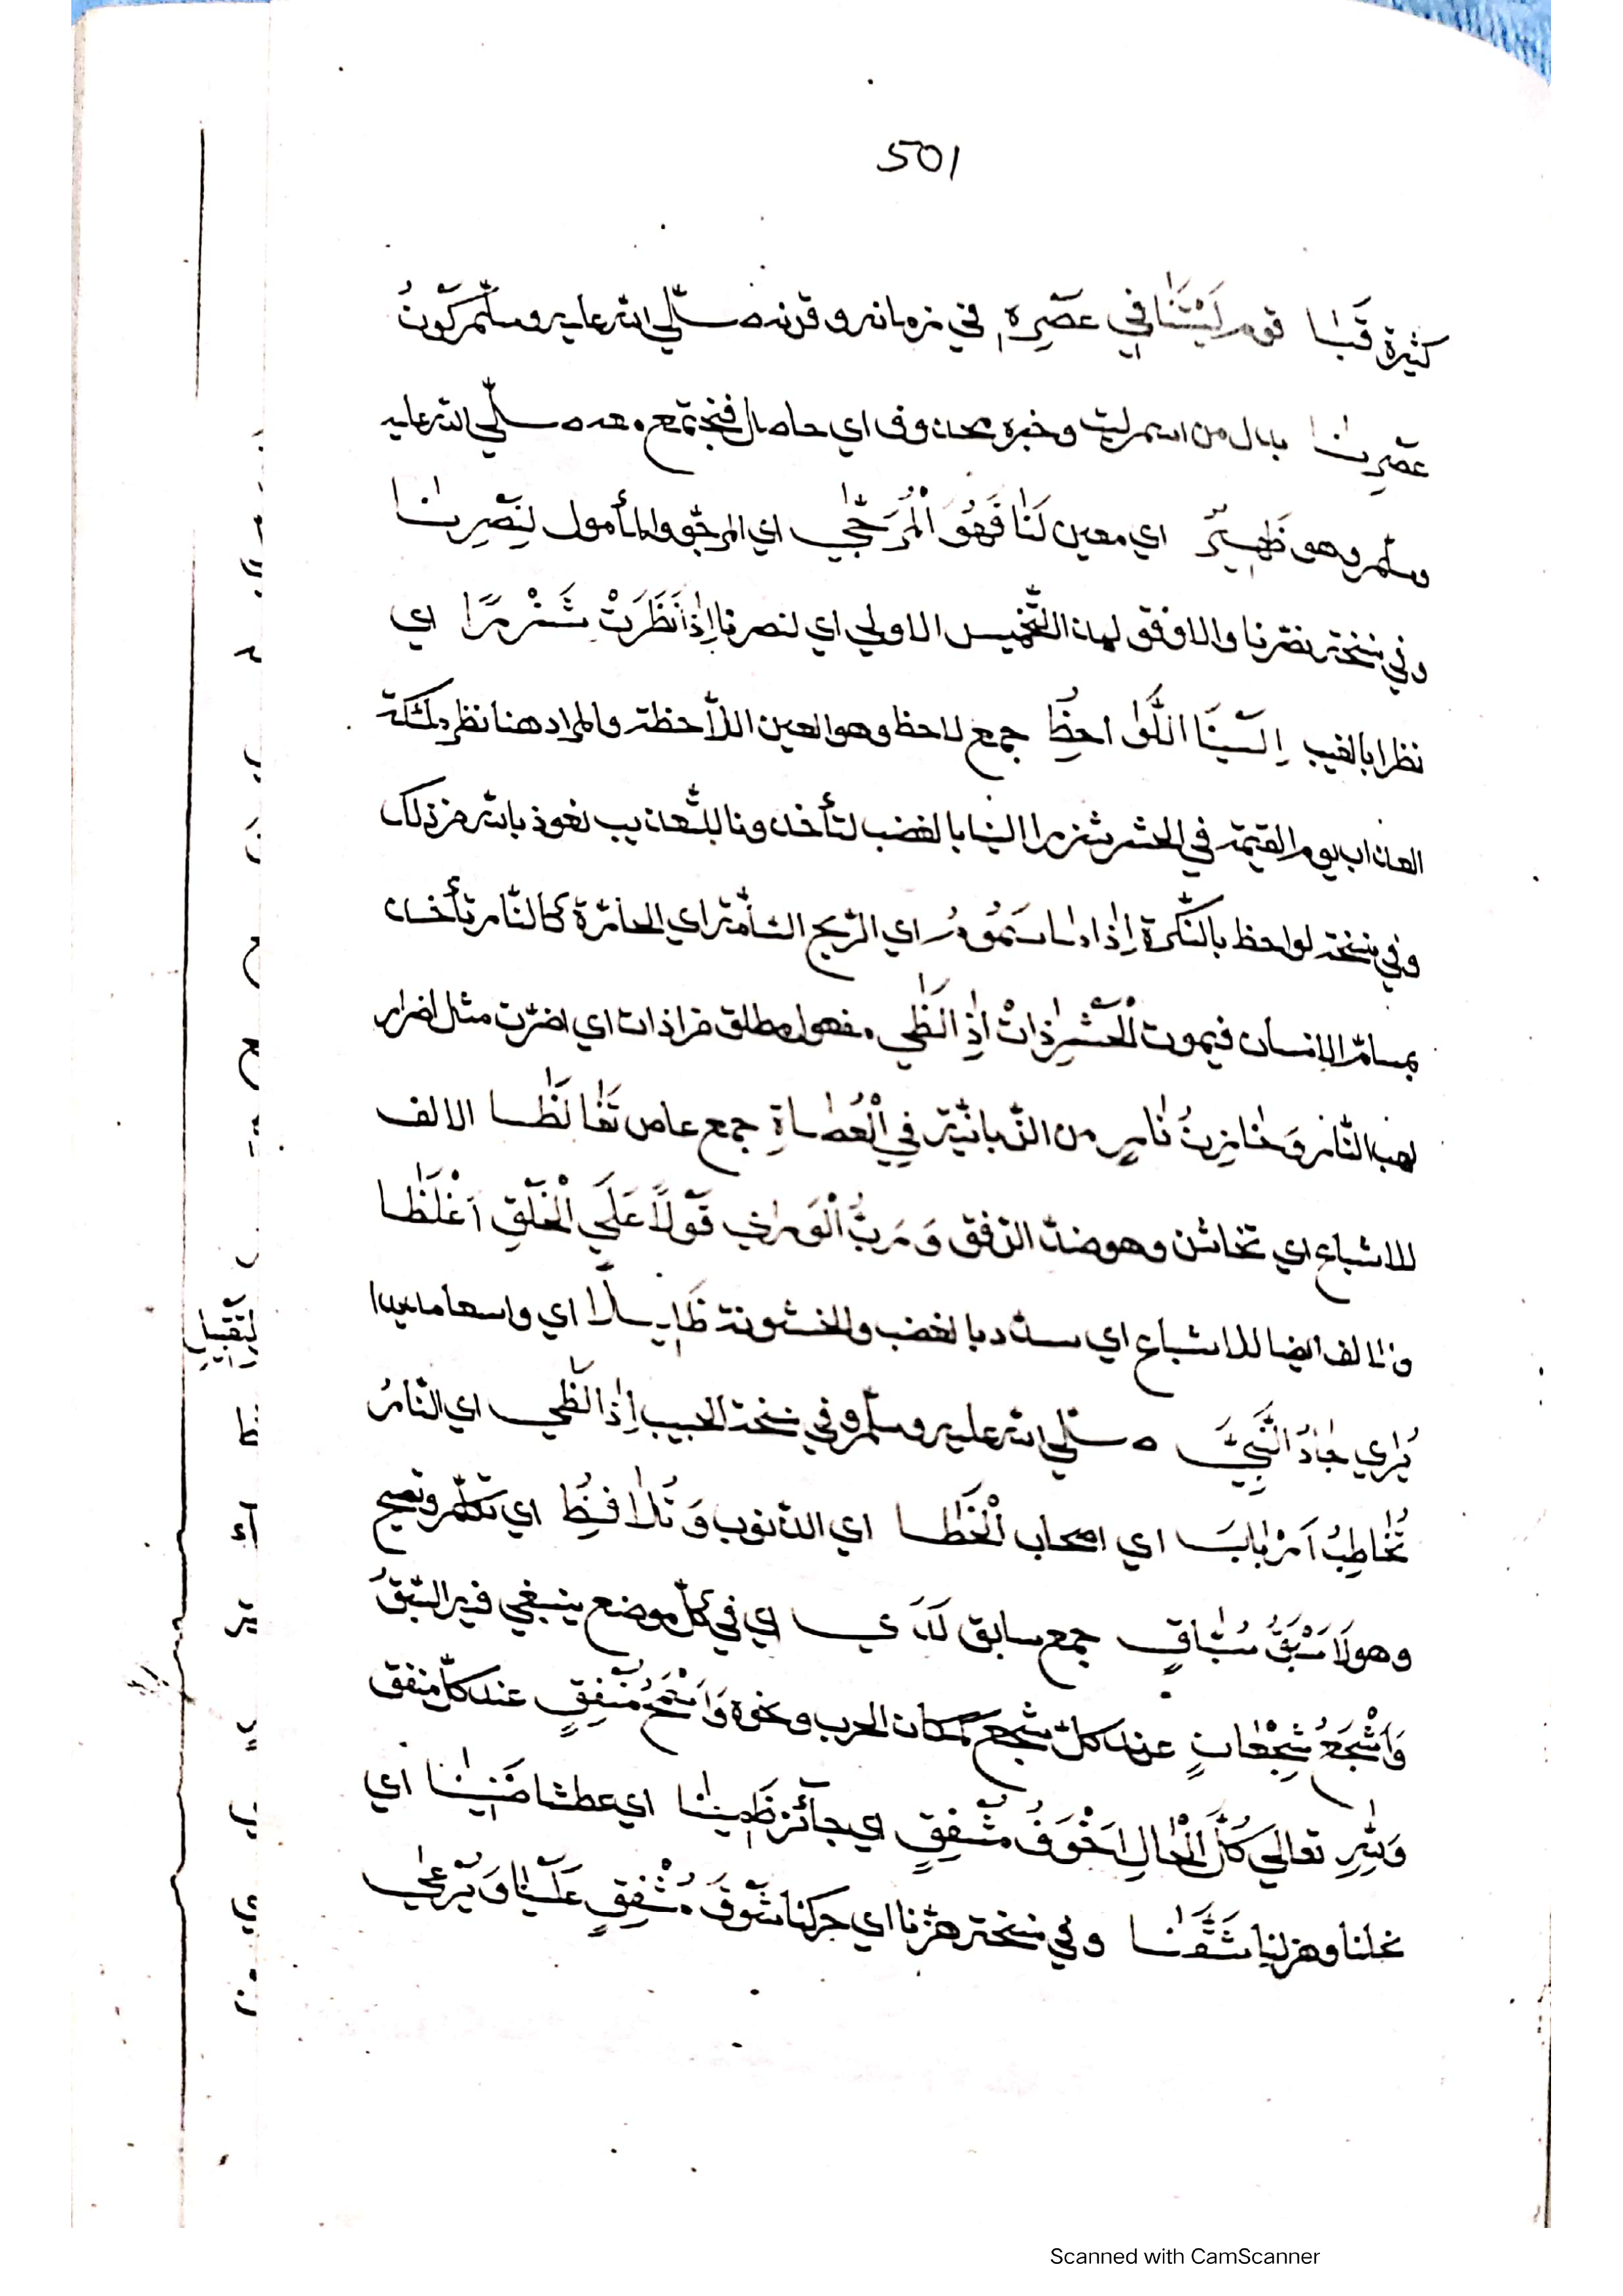 501
كثيرة قَبْلَنَا قوم لَيْتَنَا فِي عَصْرِهِ في زمانه وقرنه صلّي الله عليه وسلّم كَوْنُ
عَصْرِنَا بدل من اسم ليت وخبره محذوف اي حاصل فنجتمع معه صلّي الله عليه
وسلّم وهو ظَهِيرٌ اي معين لَنَا فَهُوَ الْمُرَجّٰي اي المرجّو والمأمول لِنَصْرِنَا
وفي نسخة بنصرنا والاوفق لهذا التّخميس الاولي اي لنصرنا اِذَا نَظَرَتْ شَزْرًا اي
نظرا بالغيب اِلَيْنَا اللَّوَاحِظُ جمع لاحظ وهو العين اللّاحظة والمراد هنا نظر ملئكة
العذاب يوم القيٰمة في الحشر شزرا الينا بالغضب لتأخذونا للتّعذيب نعوذ بالله من ذلك
وفي نسخة لواحظ بالنّكرة اِذَا مَا سَمُومُ اي الرّيح السّامّة اي الحارّة كالنّار تأخذ
بمسامّ الانسان فيموت الْحَشْرِ ذَاتْ اذِ الَظٰي مفعول مطلق من اذات اي اضرّت مثل اضرار
لهب النّار وَخَازِنُ نَارٍ من الزّبانيّة فِي الْعُصَاةِ جمع عاص تَغَالَظَا الالف
للاشباع اي تخاشن وهو ضدّ الرّفق وَرَبُّ الْوَرٰي قَوْلاً عَلَي الْخَلْقِ اَغْلَظَا
والالف ايضا للاشباع اي شدد بالغضب والخشونة ظَلِيلًا اي واسعا مديدا
يُرٰي جَاهُ النَّبِيّ صلّي الله عليه وسلّم وفي نسخة الحبيب اِذَا لَظٰي اي النّارُ
تُخَاطِبُ اَرْبَابَ اي اصحاب الْخَطَا اي الذّنوب وَتُلَافِظُ اي تكلّم وتصيح
وهو لَاَسْبَقُ سُبَّاقٍ جمع سابق لَدَيْ اي في كلّ موضع ينبغي فيه السّبقُ
وَاَشْجَعُ شِجْعَانٍ عند كلّ شجع كمكان الحرب ونحوه وَاَسْمَحُ مُنْفِقٍ عند كلّ منفق
وَلِلّٰهِ تعالي كُلَّ الْحَالِ اَخْوَفُ مُشْفِقٍ اي جآئز ظَمِينَا اي عطشا ضَنِينَا اي
نحلنا وهزلنا شَفَّنَا وفي نسخة هزّنا اي حركنا شَوْقُ مُشْفِقٍ عَلَيْنَا وَيُرْعٰي
لِتَقْبِيلِ